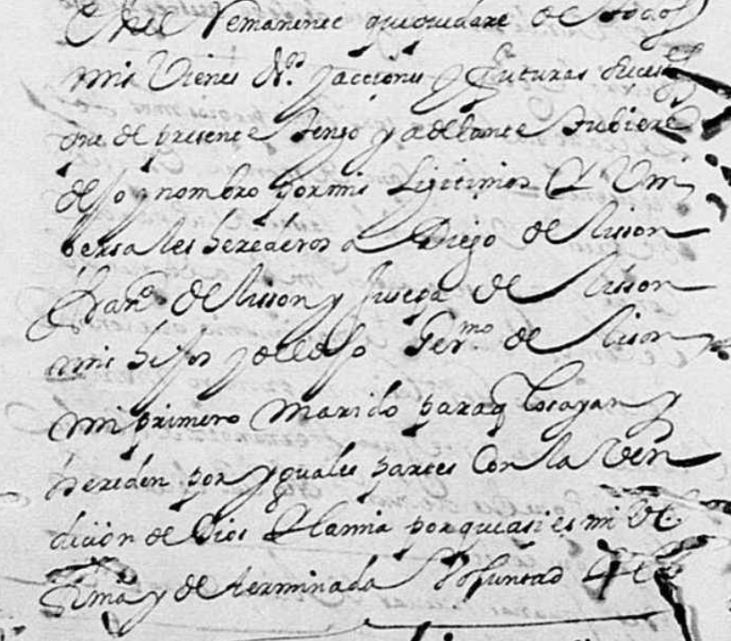 en el Remanente que quedare de todos
mis Vienes drs. y acciones y futuras suces
que de presente tengo y adelante tubiere
dejo y nombro por mis Lijitimos y Uni
bersales herederos a Diego de Lison
fran.co de Lison y Jusepa de Lison
mis hijos y del dho Ger.mo de Lison
mi primero marido para q lo ayan y
hereden por yguales partes Con la Ven
dicion de Dios y la mia porque asi es mi Ul
tima y determinada Voluntad